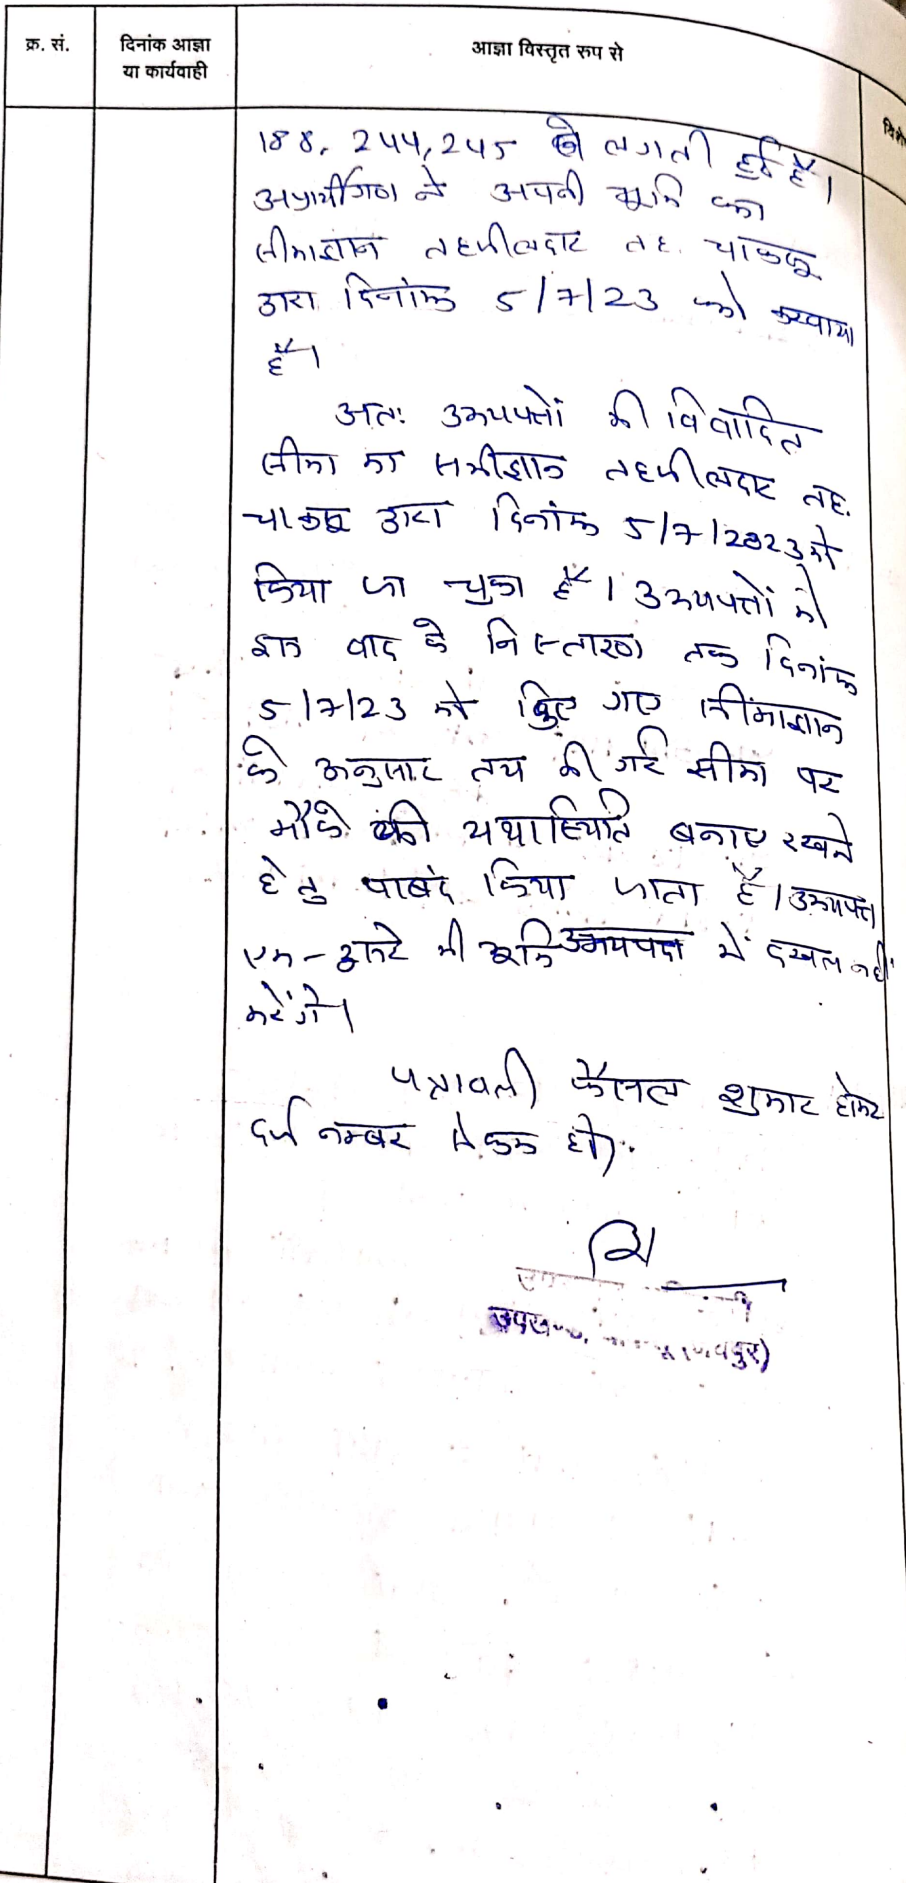 क्र. सं.
दिनांक आज्ञा
या कार्यवाही
आज्ञा विस्तृत रुप से
188, 244, 245 से लगती हुई है।
अप्रार्थीगण ने अपनी भूमि का
सीमाज्ञान तहसीलदार तह. चाकसू
द्वारा दिनांक 5/7/23 को करवाया
है।
अतः उभयपक्षों की विवादित
सीमा का सीमाज्ञान तहसीलदार तह.
चाकसू द्वारा दिनांक 5/7/2023 को
किया जा चुका है। उभयपक्षों को
इस वाद के निस्तारण तक दिनांक
5/7/23 को किए गए सीमाज्ञान
के अनुसार तय की गई सीमा पर
मौके की यथास्थिति बनाए रखने
हेतु पाबंद किया जाता है। उभयपक्ष
एक-दूसरे की भूमि में दखल नहीं
करेंगे।
पत्रावली फैसल शुमार होकर
दर्ज नम्बर से कम हो।